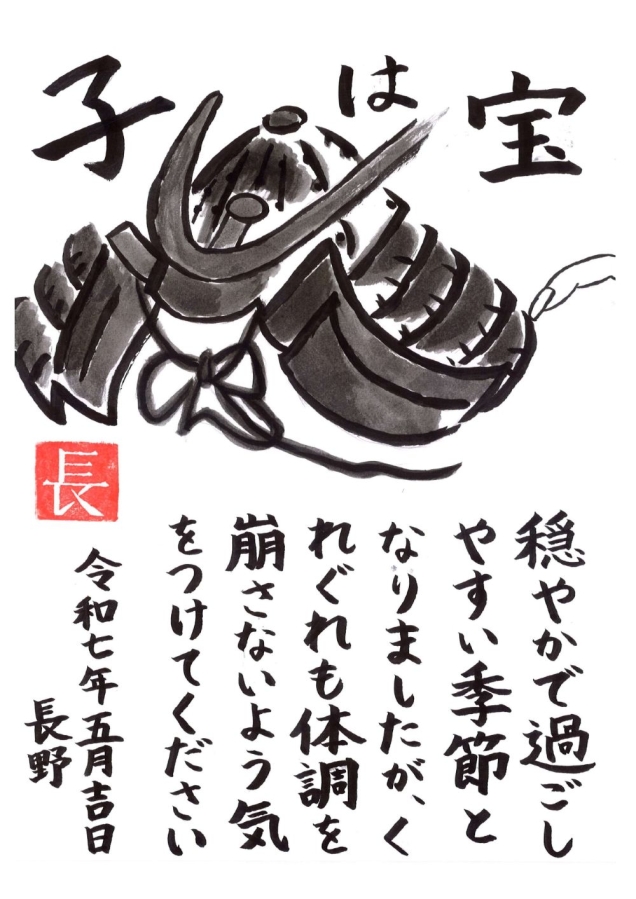 子は宝
長
穏やかで過ごし
やすい季節と
なりましたが、く
れぐれも体調を
崩さないよう気
をつけてください
令和七年五月吉日
長野